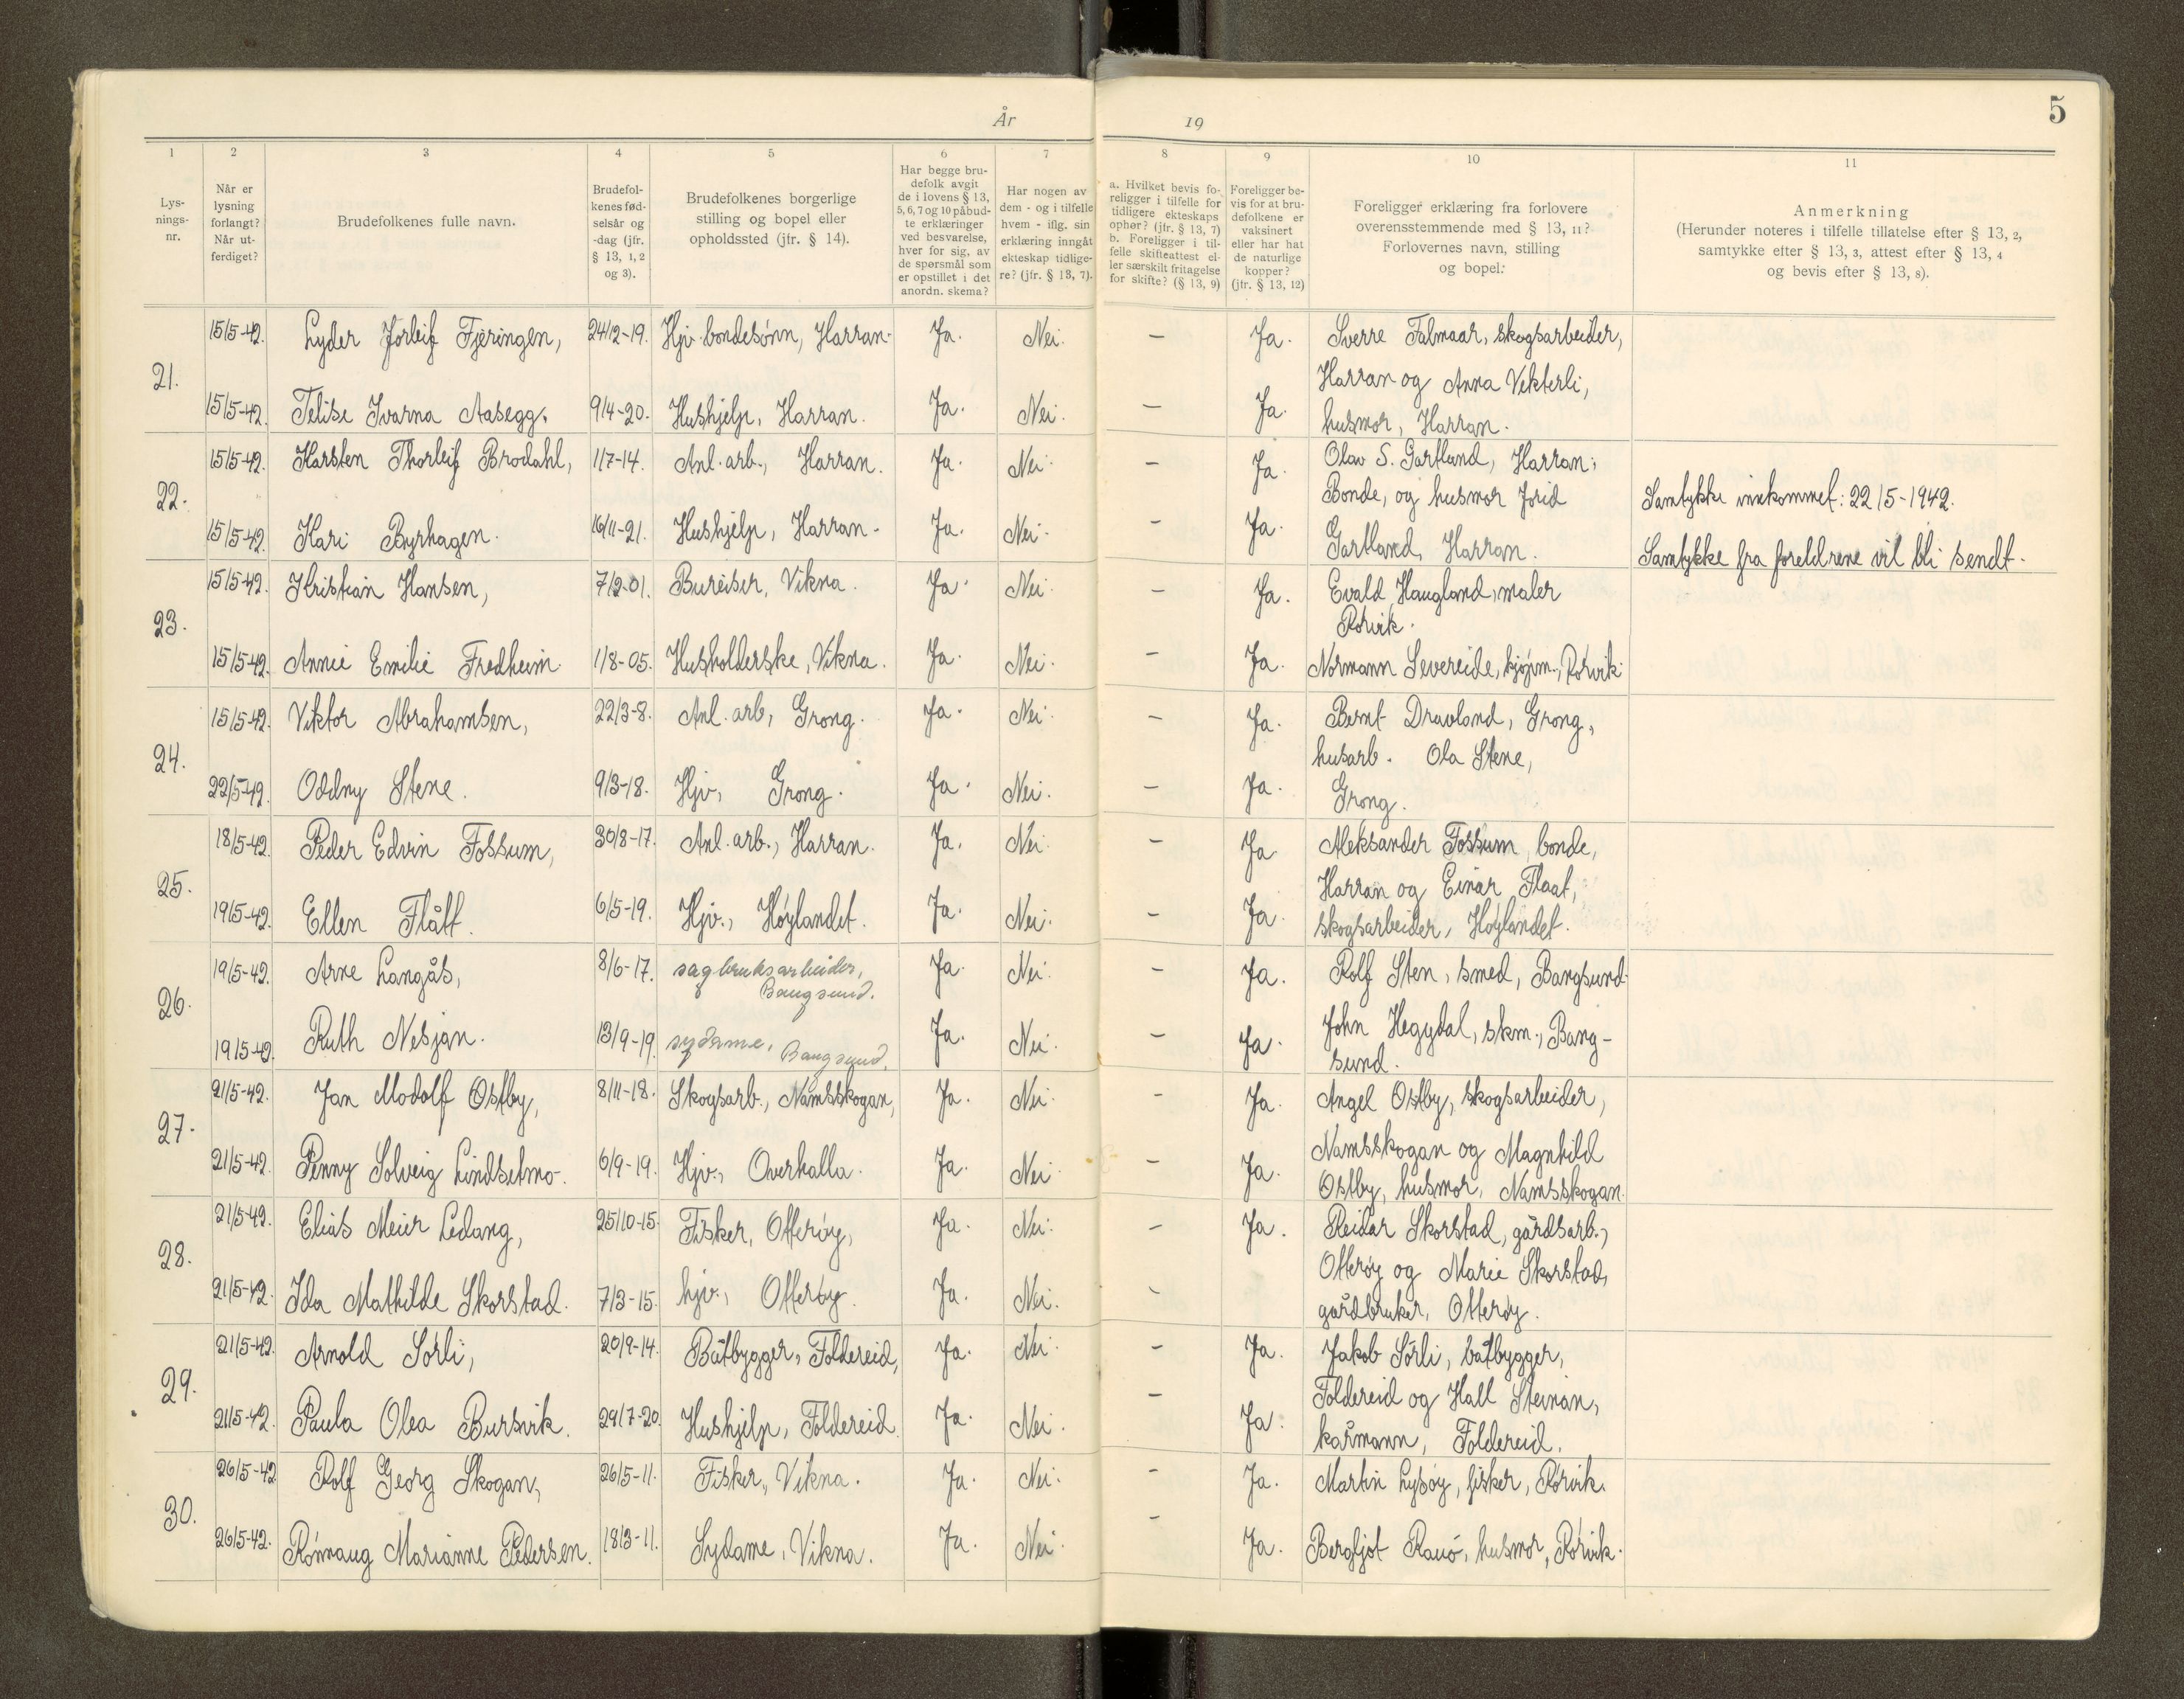 År 19
5
1 2 3 4 5 6 7 8 9 10 11
Lys-
nings-
nr.
Når er
lysning
forlangt?
Når ut-
ferdiget?
Brudefolkenes fulle navn.
Brudefol-
kenes fød-
selsår og
-dag (jfr.
§ 13, 1, 2
og 3).
Brudefolkenes borgerlige
stilling og bopel eller
opholdssted (jfr. § 14).
Har begge bru-
defolk avgit
de i lovens § 13,
5, 6, 7 og 10 påbud-
te erklæringer
ved besvarelse,
hver for sig, av
de spørsmål som
er opstillet i det
anordn. skema?
Har nogen av
dem - og i tilfelle
hvem - iflg. sin
erklæring inngåt
ekteskap tidlige-
re? (jfr. § 13, 7).
a. Hvilket bevis fo-
religger i tilfelle for
tidligere ekteskaps
ophør? (jfr. § 13, 7)
b. Foreligger i til-
felle skifteattest el-
ler særskilt fritagelse
for skifte? (§ 13, 9)
Foreligger be-
vis for at bru-
defolkene er
vaksinert
eller har hat
de naturlige
kopper?
(jfr. § 13, 12)
Foreligger erklæring fra forlovere
overensstemmende med § 13, 11?
Forlovernes navn, stilling
og bopel:
Anmerkning
(Herunder noteres i tilfelle tillatelse efter § 13, 2,
samtykke efter § 13, 3, attest efter § 13, 4
og bevis efter § 13, 8).
21.
15/5-42. Lyder Jorleif Fjeringen, 24/12-19. Hjv. bondesønn, Harran. Ja. Nei. – Ja.
15/5-42. Telise Ivarna Aasegg. 9/4-20. Hushjelp, Harran. Ja. Nei. – Ja.
Sverre Falmaar, skogsarbeider,
Harran og Anna Vekterli,
husmor, Harran.
22.
15/5-42. Karsten Thorleif Brodahl, 1/7-14. Anl. arb., Harran. Ja. Nei. – Ja.
15/5-42. Kari Byrhagen. 16/11-21. Hushjelp, Harran. Ja. Nei. – Ja.
Olav S. Gartland, Harran,
Bonde, og husmor Jorid
Gartland, Harran.
Samtykke innkommet: 22/5-1942.
Samtykke fra foreldrene vil bli sendt.
23.
15/5-42. Kristian Hansen, 7/2-01. Bureiser, Vikna. Ja. Nei. – Ja.
15/5-42. Annie Emilie Fredheim. 1/8-05. Husholderske, Vikna. Ja. Nei. – Ja.
Evald Haugland, maler
Rørvik.
Normann Severeide, kjøpm., Rørvik.
24.
15/5-42. Viktor Abrahamsen, 22/3-8. Anl. arb, Grong. Ja. Nei. – Ja.
22/5-42. Oddny Stene. 9/3-18. Hjv, Grong. Ja. Nei. – Ja.
Bernt Dravland, Grong,
husarb. Ola Stene,
Grong.
25.
18/5-42. Peder Edvin Fossum, 30/8-17. Anl. arb., Harran. Ja. Nei. – Ja
19/5-42. Ellen Flått. 6/5-19. Hjv., Høylandet. Ja. Nei. – Ja.
Aleksander Fossum, bonde,
Harran og Einar Flaat,
skogsarbeider, Høylandet.
26.
19/5-42. Arne Langås, 8/6-17. sagbruksarbeider, Ja. Nei. – Ja.
Bangsund.
19/5-42. Ruth Nesjan. 13/9-19. sydame, Bangsund. Ja. Nei. – Ja.
Rolf Sten, smed, Bangsund.
John Hegydal, skm., Bang-
sund.
27.
21/5-42. Jan Modolf Østby, 8/11-18. Skogsarb., Namsskogan, Ja. Nei. – Ja.
21/5-42. Penny Solveig Lindsetmo. 6/9-19. Hjv., Overhalla. Ja. Nei. – Ja.
Angel Østby, skogsarbeider,
Namsskogan og Magnhild
Østby, husmor, Namsskogan.
28.
21/5-42. Elias Meier Ledang, 25/10-15. Fisker, Otterøy, Ja. Nei. – Ja.
21/5-42. Ida Mathilde Skorstad. 7/3-15. hjv., Otterøy. Ja. Nei. –
Reidar Skorstad, gårdsarb.,
Otterøy og Marie Skorstad,
gårdbruker, Otterøy.
29.
21/5-42. Arnold Sørli, 20/9-14. Båtbygger, Foldereid, Ja. Nei. – Ja.
21/5-42. Paula Olea Bursvik. 29/7-20. Hushjelp, Foldereid. Ja. Nei. – Ja.
Jakob Sørli, båtbygger,
Foldereid og Hall Steinan,
kårmann, Foldereid.
30.
26/5-42 Rolf Georg Skogan, 26/5-11. Fisker, Vikna. Ja. Nei. – Ja.
26/5-42. Rønnaug Marianne Pedersen. 18/3-11. Sydame, Vikna. Ja. Nei. – Ja.
Martin Lysøy, fisker, Rørvik.
Bergljot Rauø, husmor, Rørvik.